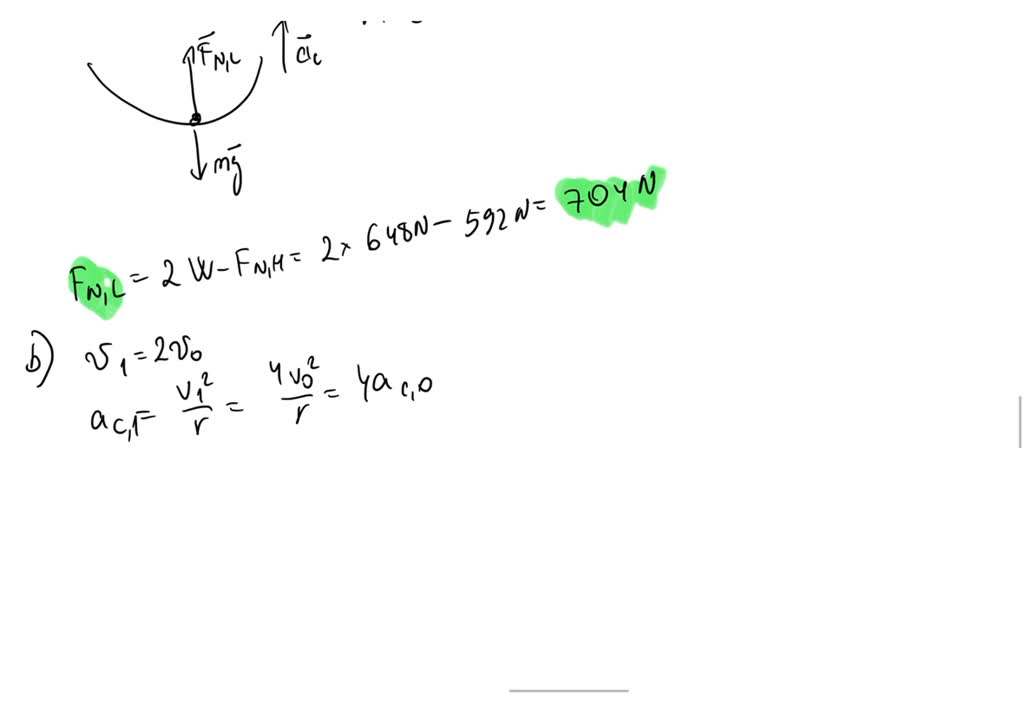 F⃗N,L
a⃗c
mg⃗
FN,L = 2W - FN,H = 2 × 648N - 592N = 704N
b) v1 = 2v0
ac,1 = v1²/r = 4v0²/r = 4ac,0